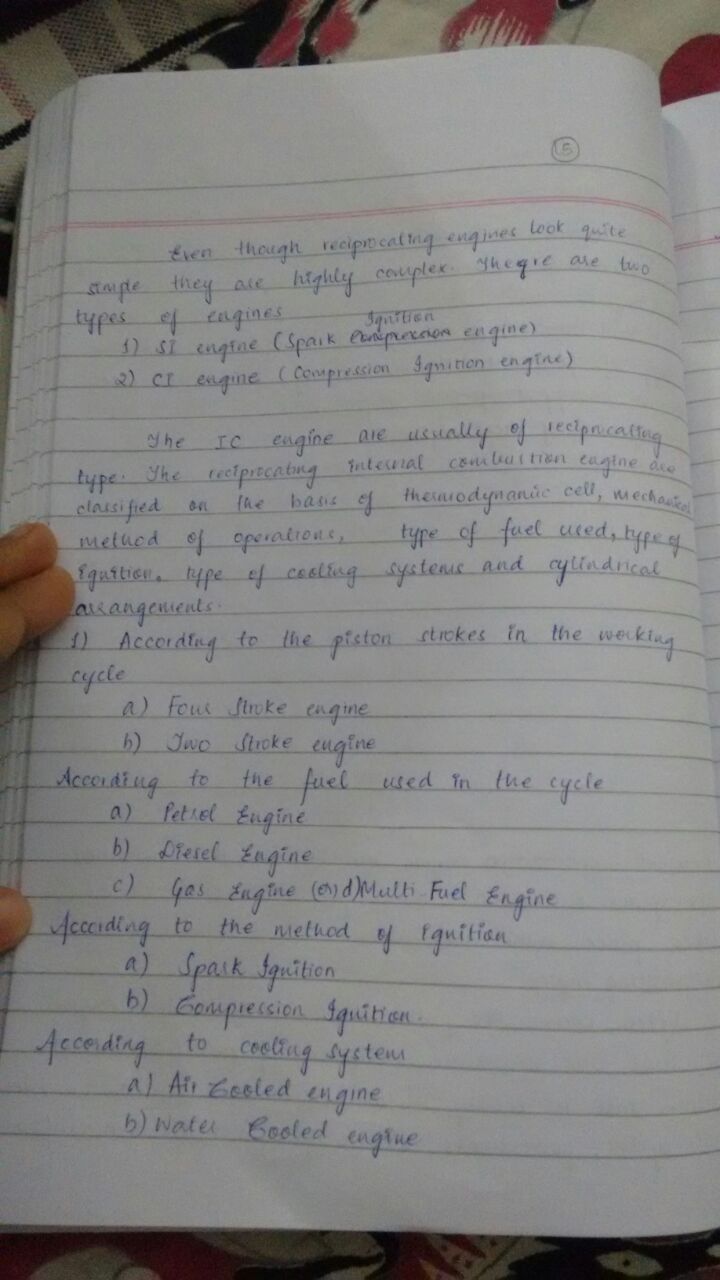 5
Even though reciprocating engines look quite
simple they are highly complex. There are two
types of engines
1) SI engine (Spark Ignition engine)
2) CI engine (Compression Ignition engine)
The IC engine are usually of reciprocating
type. The reciprocating internal combustion engine are
classified on the basis of thermodynamic cell, mechanical
method of operations, type of fuel used, type of
ignition, type of cooling systems and cylindrical
arrangements.
1) According to the piston strokes in the working
cycle
a) Four Stroke engine
b) Two Stroke engine
According to the fuel used in the cycle
a) Petrol Engine
b) Diesel Engine
c) Gas Engine (or) d) Multi Fuel Engine
According to the method of Ignition
a) Spark Ignition
b) Compression Ignition.
According to cooling system
a) Air Cooled engine
b) Water Cooled engine